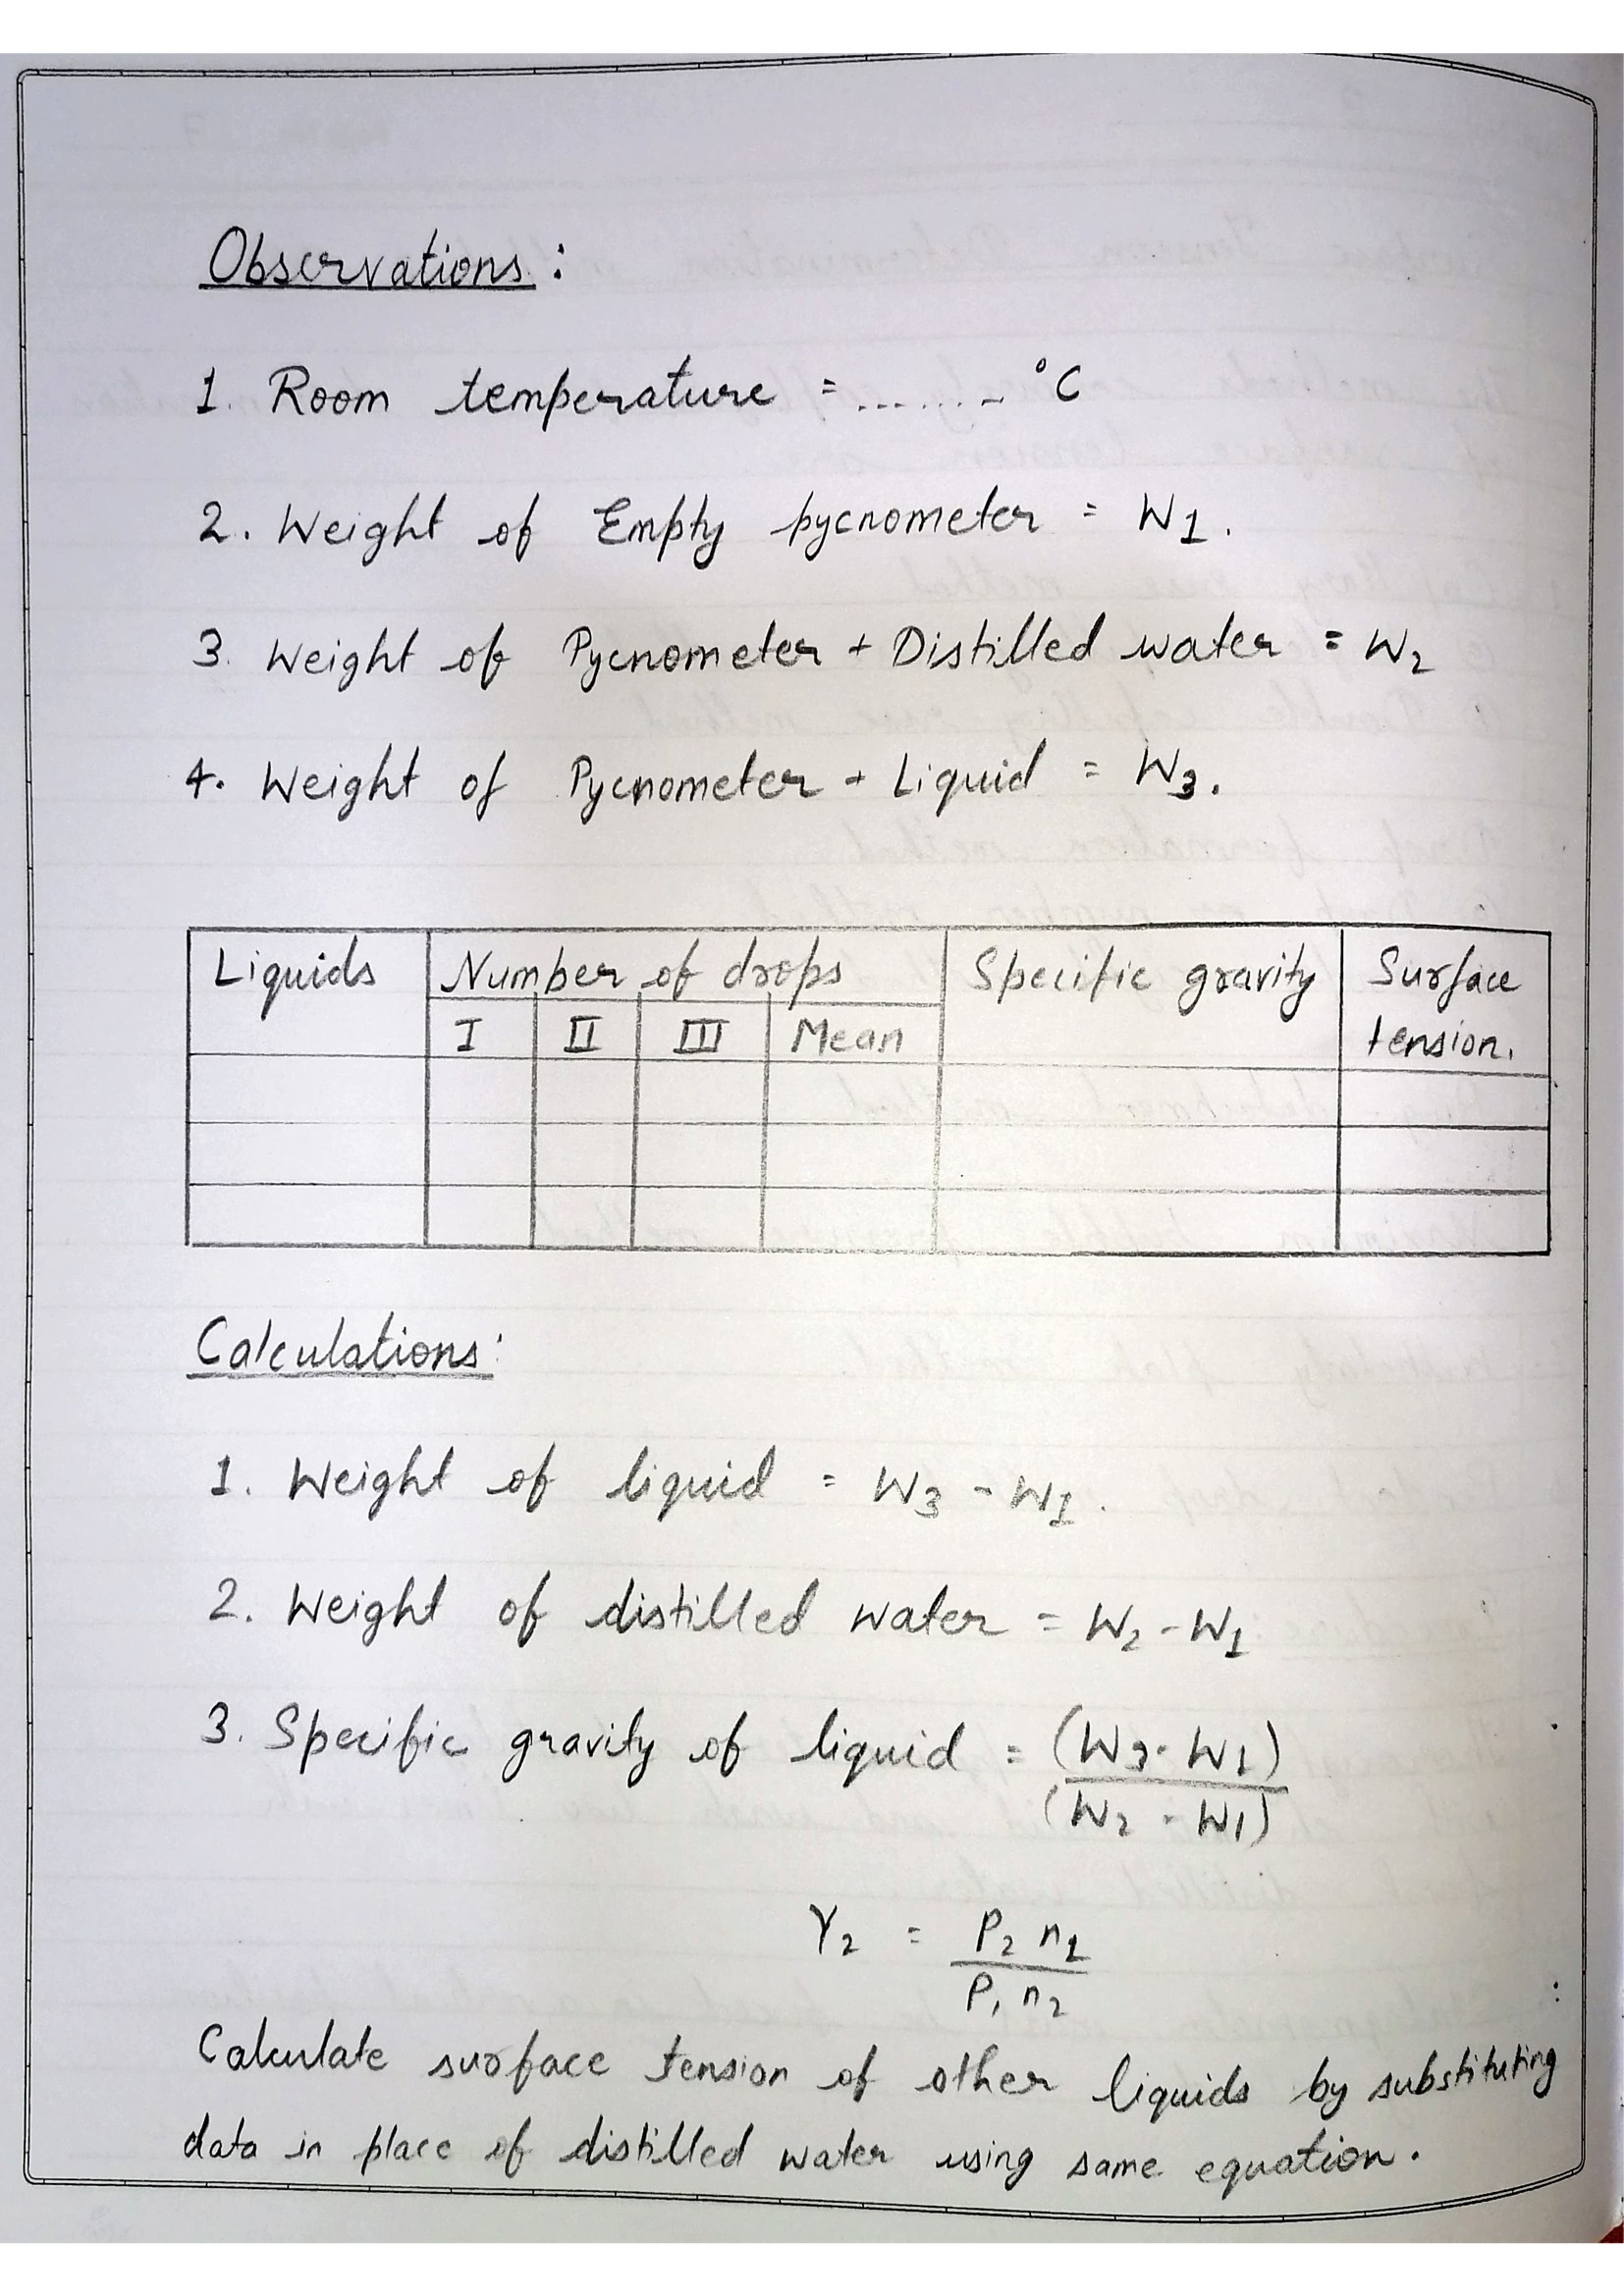 Observations :
1. Room temperature = ....... °C
2. Weight of Empty pycnometer = W1.
3. Weight of Pycnometer + Distilled water = W2
4. Weight of Pycnometer - Liquid = W3.
Liquids Number of drops Specific gravity Surface tension.
I II III Mean
Calculations:
1. Weight of liquid = W3 - W1.
2. Weight of distilled water = W2 - W1
3. Specific gravity of liquid = (W3 - W1)
(W2 - W1)
γ2 = P2 n1
P1 n2
Calculate surface tension of other liquids by substituting
data in place of distilled water using same equation.